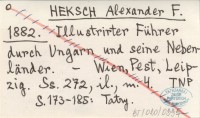 HEKSCH Alexander F.
1882. Illustrirter Führer
durch Ungarn und seine Neben-
länder. – Wien, Pest, Leip-
zig. Ss. 272, il., m. 4. TNP
S. 173-185: Tatry.